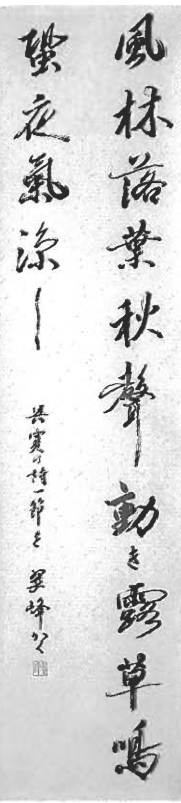 風林落葉秋聲動き露草鳴
蛩夜氣涼し
呉寛の詩一節を 翠峰かく